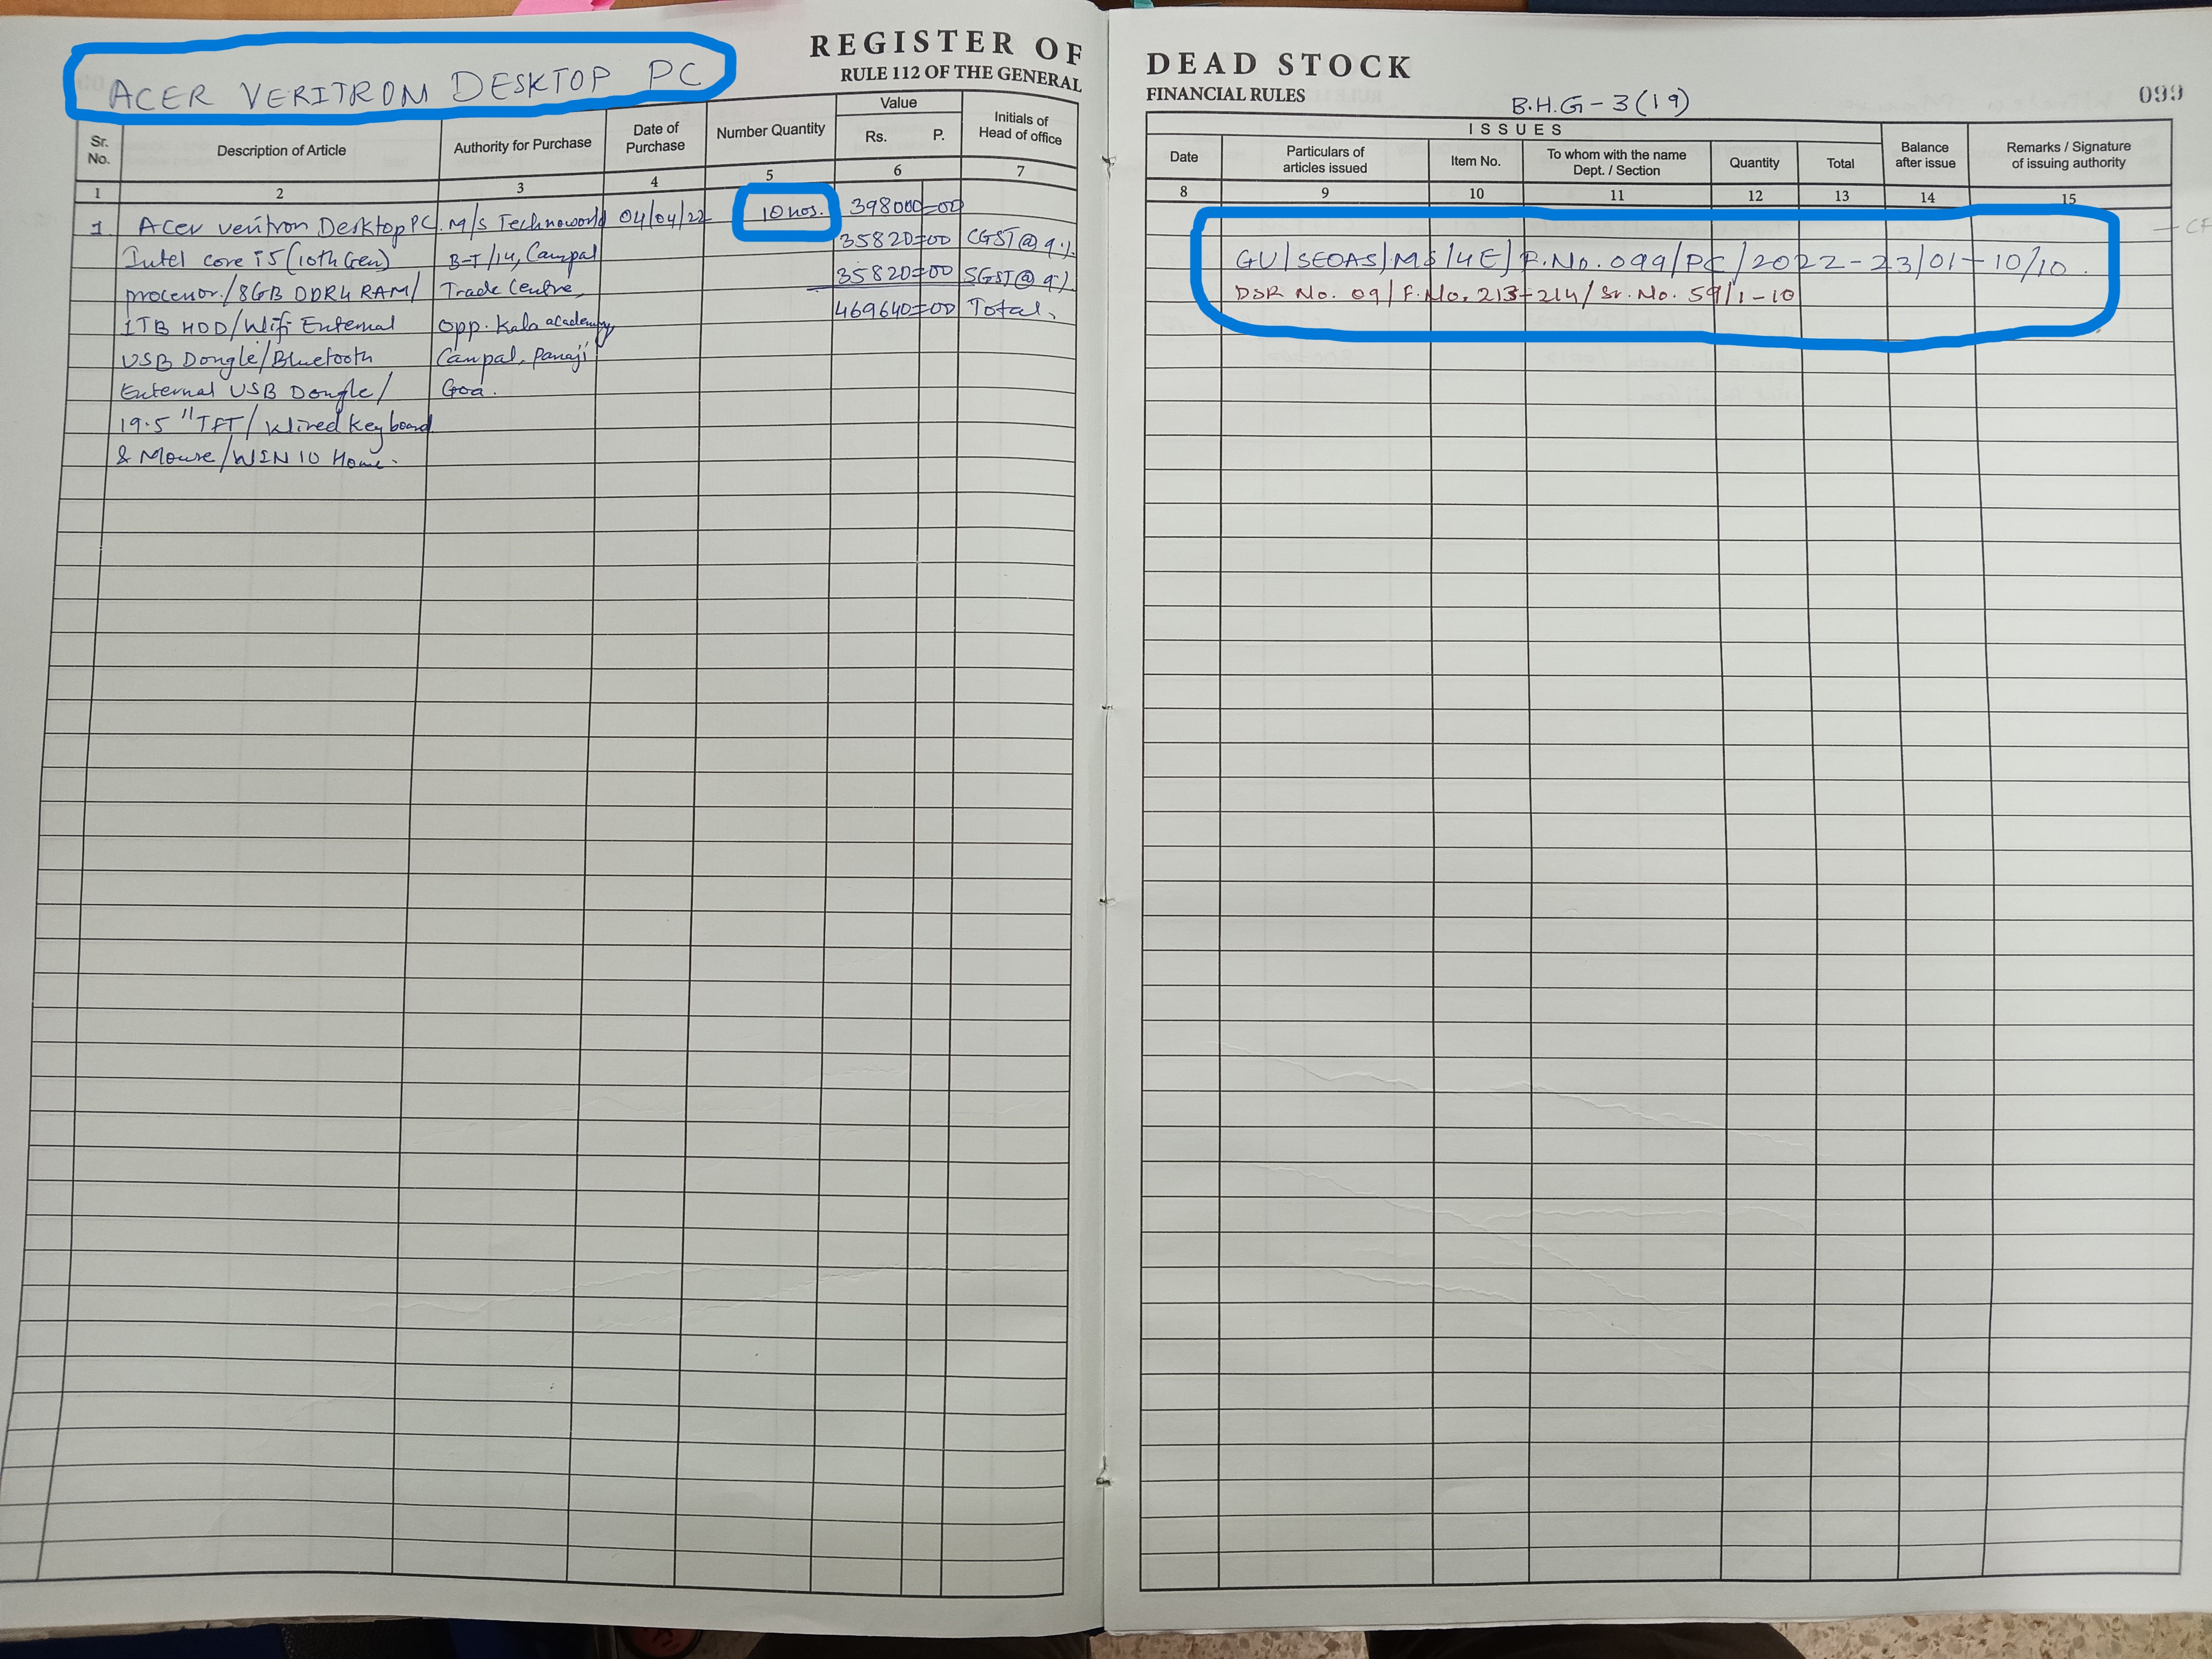 ACER VERITRON DESKTOP PC
REGISTER OF
RULE 112 OF THE GENERAL
Sr. No.
Description of Article
Authority for Purchase
Date of Purchase
Number Quantity
Value
Rs. P.
Initials of Head of office
1 2 3 4 5 6 7
1 Acer veritron Desktop PC. M/S Technoworld 04/04/22 10 nos. 398000=00
Intel core i5 (10th Gen) B-T/14, Campal 35820=00 CGST@9%
processor/8GB DDR4 RAM/ Trade Centre, 35820=00 SGST@9%
1TB HDD/Wifi External opp. Kala academy, 469640=00 Total.
USB Dongle/Bluetooth Campal, Panaji
External USB Dongle/ Goa.
19.5 "TFT/ Wired Keyboard
& Mouse/WIN 10 Home.
DEAD STOCK
FINANCIAL RULES
B.H.G-3(19)
099
ISSUES
Date
Particulars of articles issued
Item No.
To whom with the name Dept. / Section
Quantity
Total
Balance after issue
Remarks / Signature of issuing authority
8 9 10 11 12 13 14 15
GU/SEOAS/MS/4E/F.No.099/PC/2022-23/01-10/10.
DSR No. 09/F.No.213-214/Sr.No.59/1-10